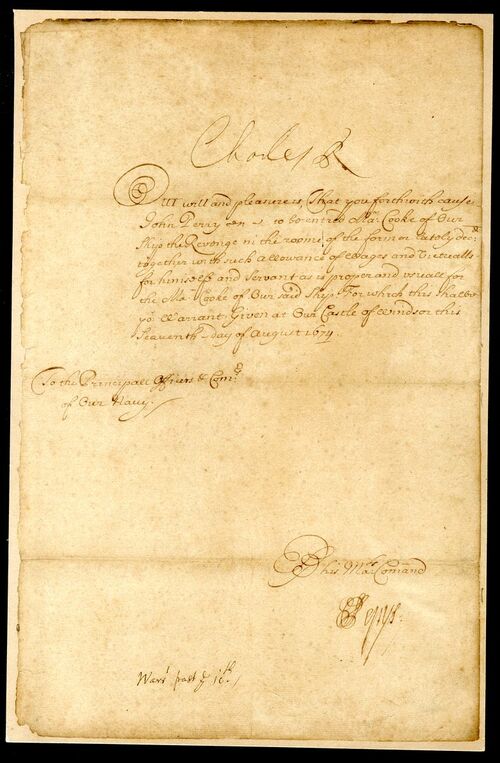 Charles R
Our will and pleasure is, That you forthwith cause
John Perry to be entred Mar. Cooke of Our
Ship the Revenge in the roome of the former lately decd.
together with such allowance of Wages and Victualls
for himself and Servant as is proper and usuall for
the Mar. Cooke of Our said Ship. For which this shalbe
yor. Warrant. Given at Our Castle of Windsor this
Seaventh day of August 1674.
To the Principall Officers & Comrs.
of Our Navy.
By his Mats. Comand
SPepys.
Warrt. past ye 10th.